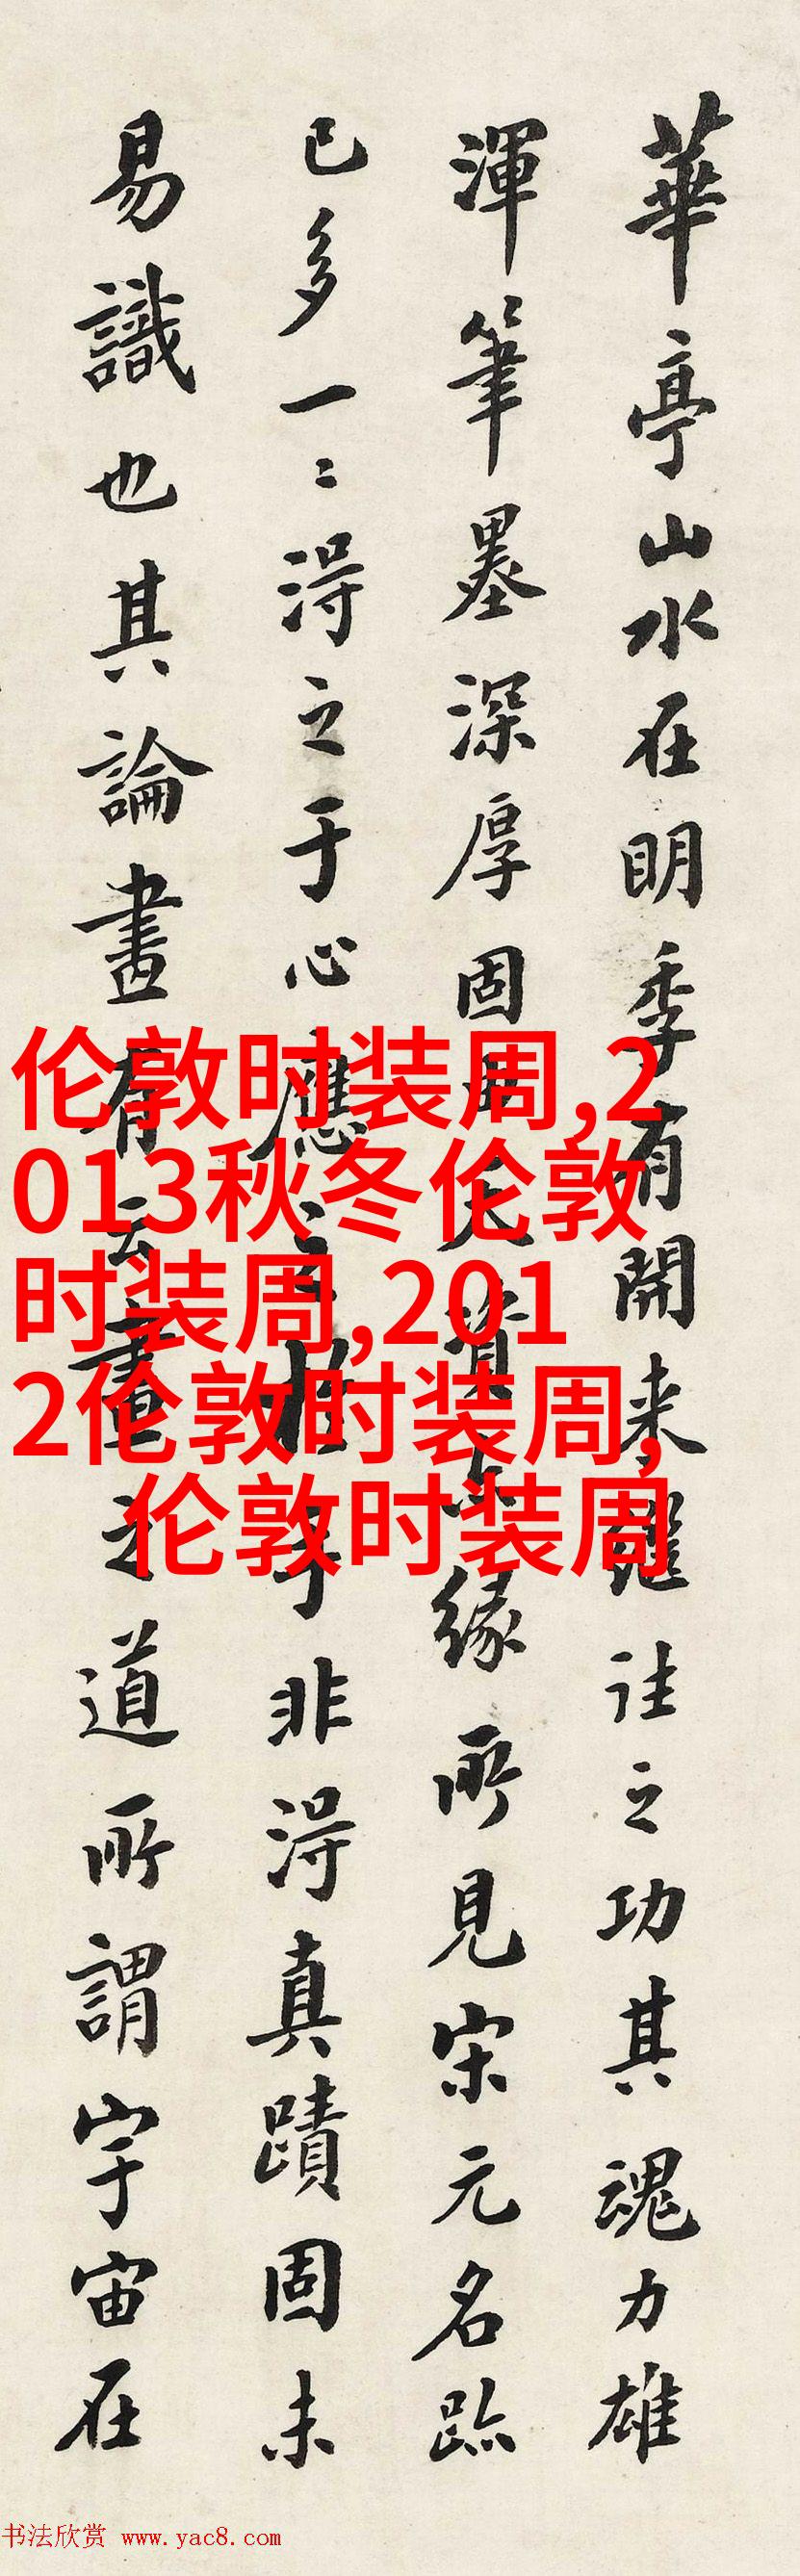 華亭山水在明季有開来繼往之功其魂力雄
渾筆墨深厚固天資亦緣所見宋元名跡
已多一〻得之于心應之於手非得真蹟固未
易識也其論畫有云畫之道所謂宇宙在
伦敦时装周,2
013秋冬伦敦
时装周,201
2伦敦时装周,
伦敦时装周
书法欣赏 www.yac8.com